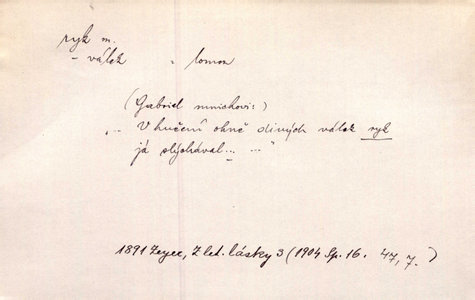 ryk m.
- válek " lomoz
(Gabriel mnichovi:)
"... V hučení ohně divých válek ryk
já slýchával... ..."
1891 Zeyer, Z let. lásky 3 (1904 Sp. 16. 47, 7.)